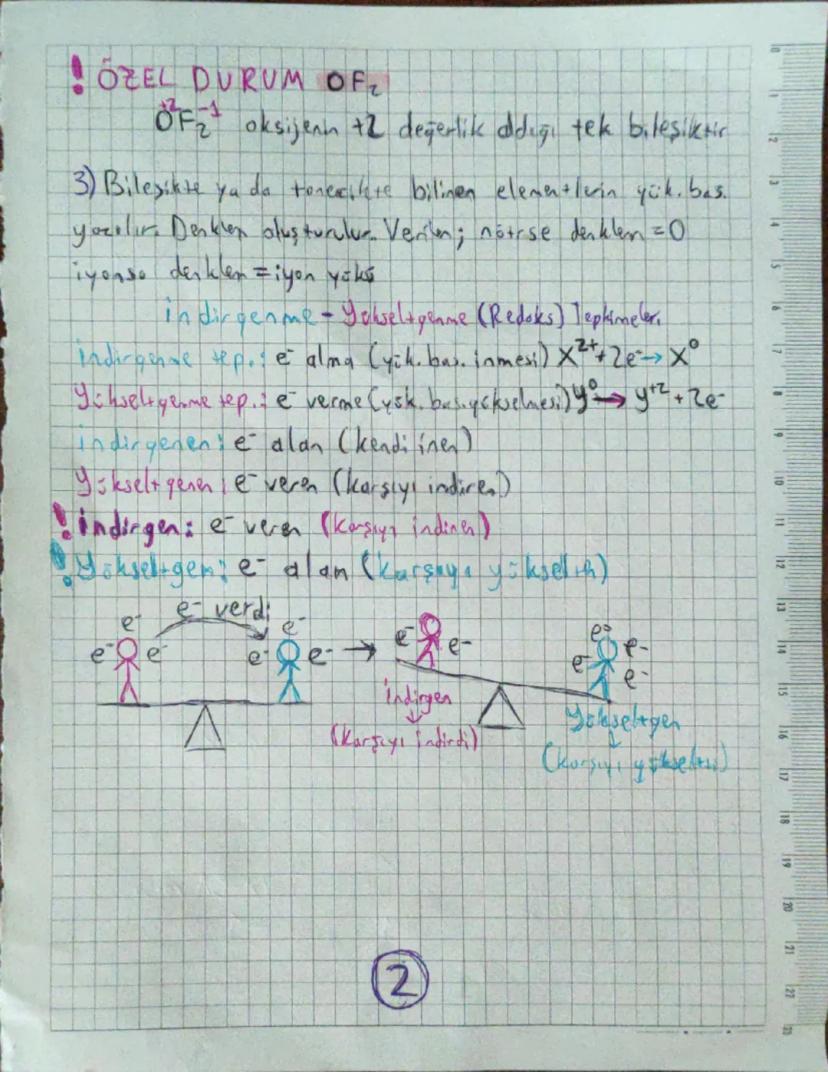 ! ÖZEL DURUM OF₂
O⁺²F₂⁻¹ oksijenin +2 değerlik aldığı tek bileşiktir
3) Bileşikte ya da tanecikte bilinen elementlerin yük. bas.
yazılır. Denklem oluşturulur. Verilen; nötrse denklem = 0
iyonsa denklem = iyon yükü
indirgenme - Yükseltgenme (Redoks) Tepkimeleri
indirgenme tep.: e⁻ alma (yük. bas. inmesi) X²⁺ + 2e⁻ → X⁰
Yükseltgenme tep.: e⁻ verme (yük. bas. yükselmesi) y⁰ → y⁺² + 2e⁻
indirgenen: e⁻ alan (kendi inen)
Yükseltgenen: e⁻ veren (karşıyı indiren)
! İndirgen: e⁻ veren (karşıyı indiren)
! Yükseltgen: e⁻ alan (karşıyı yükselten)
e⁻ e⁻ verdi e⁻ e⁻
e⁻ e⁻ e⁻ e⁻ → e⁻ e⁻ e⁻ e⁻ e⁻
indirgen
Yükseltgen
(karşıyı indirdi)
(karşıyı yükseltti)
2
0
1
2
3
4
5
6
7
8
9
10
11
12
13
14
15
16
17
18
19
20
21
22
23